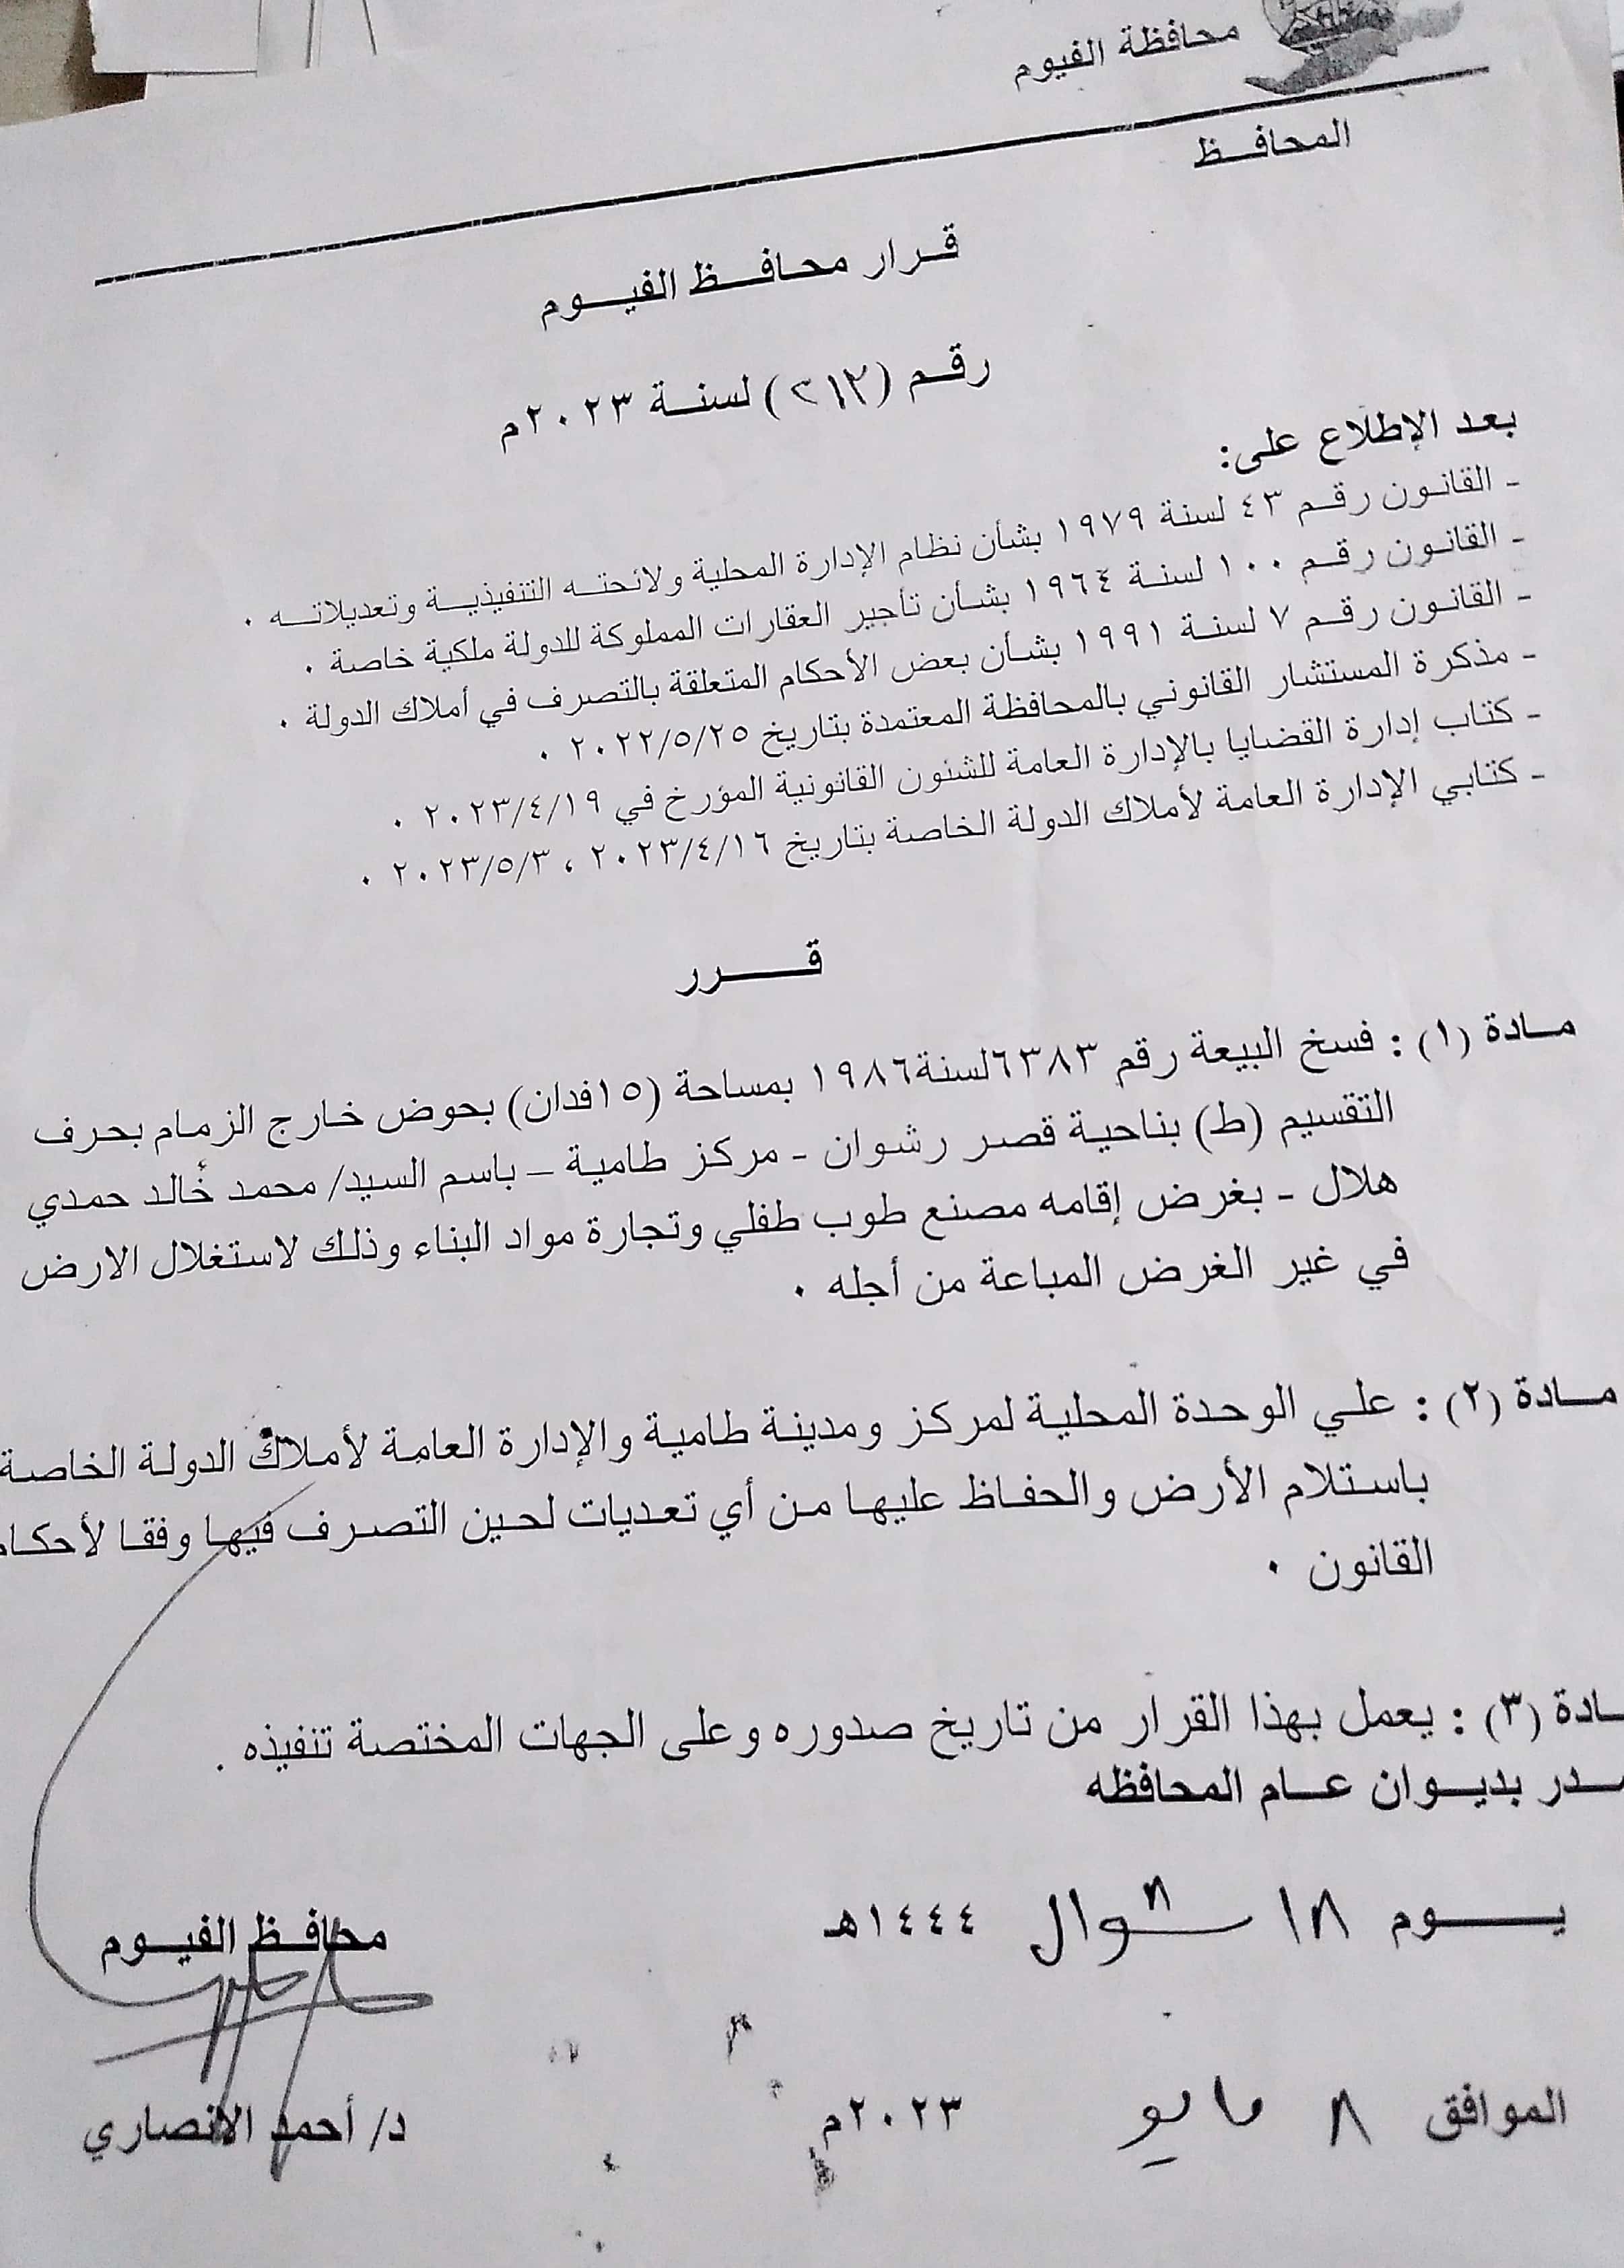 محافظة الفيوم
المحافظ
قرار محافظ الفيوم
رقم (٢١٢) لسنة ٢٠٢٣م
بعد الإطلاع على:
- القانون رقم ٤٣ لسنة ١٩٧٩ بشأن نظام الإدارة المحلية ولائحته التنفيذية وتعديلاته .
- القانون رقم ١٠٠ لسنة ١٩٦٤ بشأن تأجير العقارات المملوكة للدولة ملكية خاصة .
- القانون رقم ٧ لسنة ١٩٩١ بشأن بعض الأحكام المتعلقة بالتصرف في أملاك الدولة .
- مذكرة المستشار القانوني بالمحافظة المعتمدة بتاريخ ٢٠٢٢/٥/٢٥ .
- كتاب إدارة القضايا بالإدارة العامة للشئون القانونية المؤرخ في ٢٠٢٣/٤/١٩ .
- كتابي الإدارة العامة لأملاك الدولة الخاصة بتاريخ ٢٠٢٣/٤/١٦ ، ٢٠٢٣/٥/٣ .
قرر
مادة (١) : فسخ البيعة رقم ٦٣٨٣لسنة١٩٨٦ بمساحة (١٥فدان) بحوض خارج الزمام بحرف
التقسيم (ط) بناحية قصر رشوان - مركز طامية – باسم السيد/ محمد خالد حمدي
هلال - بغرض إقامه مصنع طوب طفلي وتجارة مواد البناء وذلك لاستغلال الارض
في غير الغرض المباعة من أجله .
مادة (٢) : علي الوحدة المحلية لمركز ومدينة طامية والإدارة العامة لأملاك الدولة الخاصة
باستلام الأرض والحفاظ عليها من أي تعديات لحين التصرف فيها وفقا لأحكا
القانون .
ادة (٣) : يعمل بهذا القرار من تاريخ صدوره وعلى الجهات المختصة تنفيذه .
در بديوان عام المحافظه
يوم ١٨ شوال ١٤٤٤هـ
محافظ الفيوم
الموافق ٨ مايو ٢٠٢٣م
د/ أحمد الانصاري